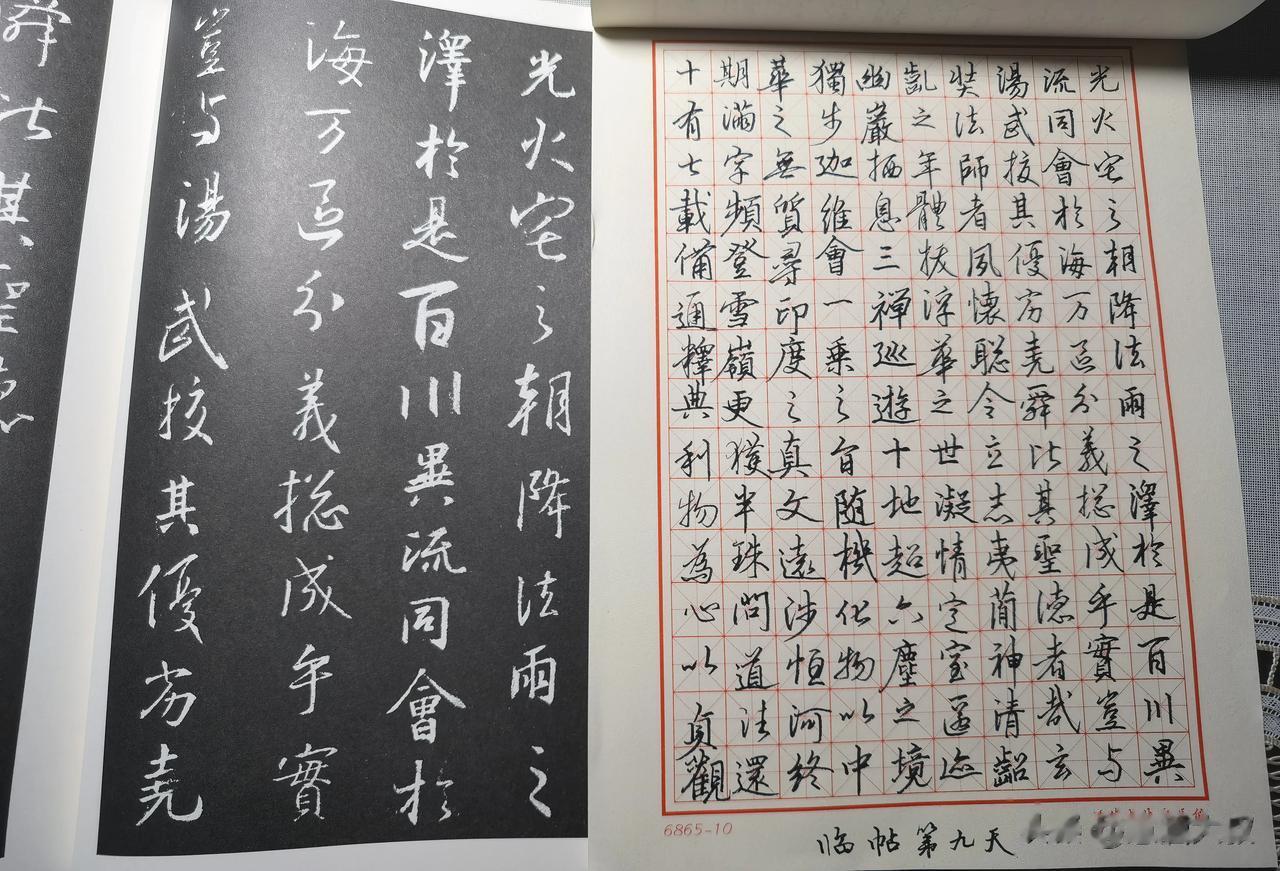 光火宅之朝降法雨之
澤於是百川異流同會於
海万區分義揔成乎實
豈与湯武挍其優劣堯
舜比其聖德
光火宅之朝降法雨之澤於是百川異
流同會於海万區分義揔成乎實豈与
湯武挍其優劣堯舜比其聖德者哉玄
奘法師者夙懷聡令立志夷簡神清齠
齓之年體拔浮華之世凝情定室匿迹
幽巖栖息三禅巡遊十地超六塵之境
獨步迦維會一乗之旨随機化物以中
華之無質尋印度之真文遠涉恒河終
期滿字頻登雪嶺更獲半珠問道法還
十有七載備通釋典利物為心以貞觀
6865-10
临帖第九天